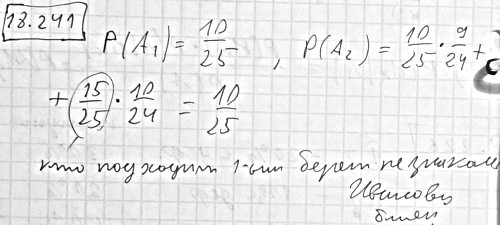 18.241
P(A₁) = 10/25 , P(A₂) = 10/25 · 9/24 +
+ 15/25 · 10/24 = 10/25
кто подходит 1-ым берет незнаком
билет